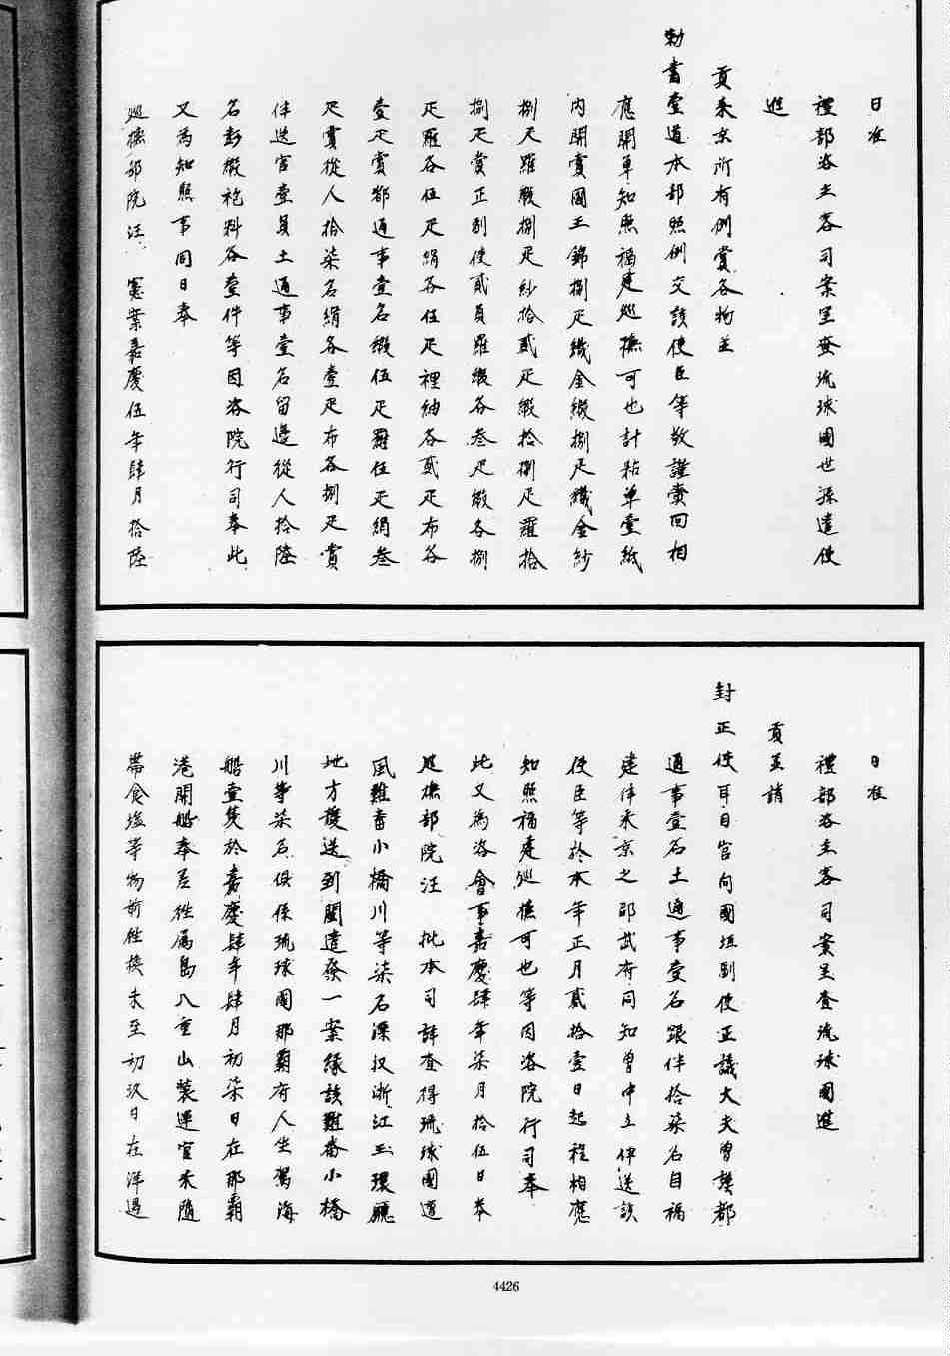 日准
禮部咨主客司案呈查琉球國世孫遣使
進
貢來京所有例賞各物並
勅書壹道本部照例交該使臣等敬謹賫回相
應開單知照福建巡撫可也計粘單壹紙
內開賞國王錦捌疋織金緞捌疋織金紗
捌疋羅緞捌疋紗拾貳疋緞拾捌疋羅拾
捌疋賞正副使貳員羅緞各叁疋緞各捌
疋羅各伍疋絹各伍疋裡紬各貳疋布各
壹疋賞都通事壹名緞伍疋羅伍疋絹叁
疋賞從人拾柒名絹各壹疋布各捌疋賞
伴送官壹員土通事壹名留邊從人拾陸
名彭緞袍料各壹件等因咨院行司奉此
又為知照事同日奉
巡撫部院汪 憲案嘉慶伍年肆月拾陸
日准
禮部咨主客司案呈查琉球國進
貢並請
封正使耳目官向國垣副使正議大夫曾謨都
通事壹名土通事壹名跟伴拾柒名自福
建伴來京之邵武府同知曾中立伴送該
使臣等於本年正月貳拾壹日起程相應
知照福建巡撫可也等因咨院行司奉
此又為咨會事嘉慶肆年柒月拾伍日奉
巡撫部院汪 批本司詳查得琉球國遭
風難番小橋川等柒名漂收浙江玉環廳
地方護送到閩遣發一案緣該難番小橋
川等柒名俱係琉球國那霸府人坐駕海
船壹隻於嘉慶肆年肆月初柒日在那霸
港開船奉差往屬島八重山裝運官米隨
帶食塩等物前往換米至初玖日在洋遇
4426